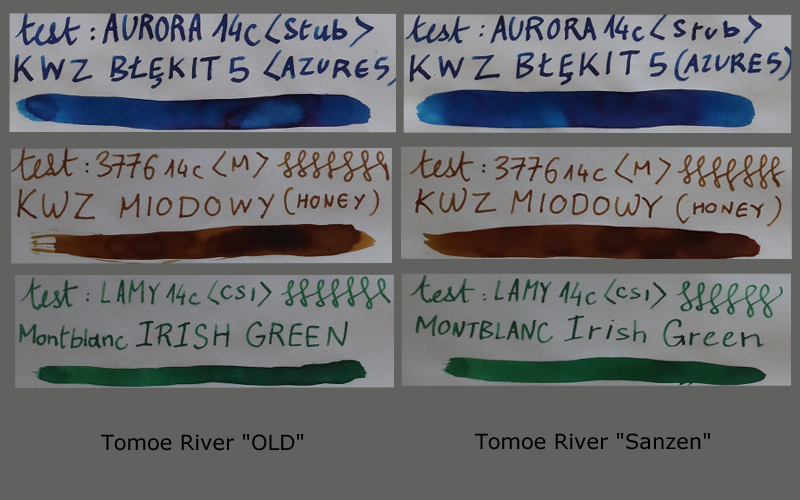 test : AURORA 14c <Stub>
KWZ BŁĘKIT 5 (AZURE5)
test : 3776 14c <M>
KWZ MIODOWY (HONEY)
test : LAMY 14c <CSI>
Montblanc IRISH GREEN
Tomoe River "OLD"
test : AURORA 14c <Stub>
KWZ BŁĘKIT 5 (AZURE5)
test : 3776 14c <M>
KWZ MIODOWY (HONEY)
test : LAMY 14c <CSI>
MONTBLANC Irish Green
Tomoe River "Sanzen"